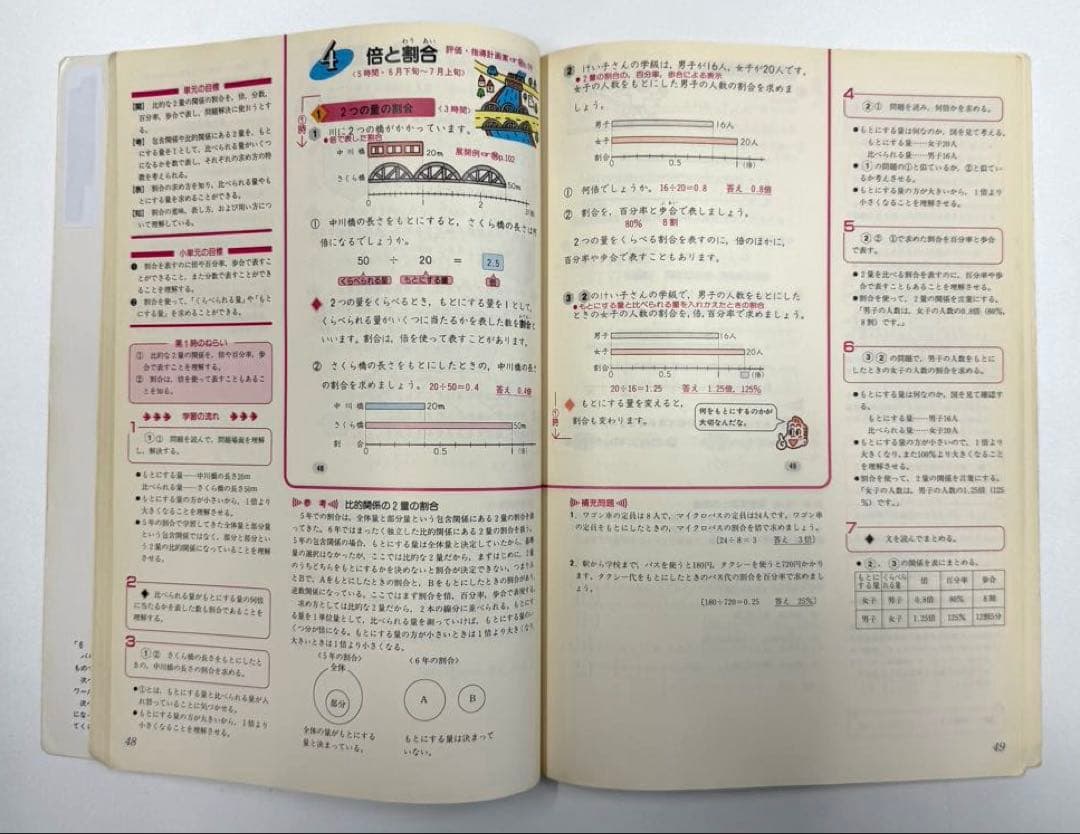 単元の目標
【関】 比的な2量の関係の割合を，倍，分数，
百分率，歩合で表し，問題解決に使おうとす
る。
【考】 包含関係や比的関係にある2量を，もと
にする量を1として，比べられる量がいくつ
になるかを数で表し，それぞれの求め方の特
徴を考えられる。
【表】 割合の求め方を知り，比べられる量やも
とにする量を求めることができる。
【知】 割合の意味，表し方，および用い方につ
いて理解している。
小単元の目標
❶ 割合を表すのに倍や百分率，歩合で表すこ
とができること，また分数で表すことができ
ることを理解する。
❷ 割合を使って，「くらべられる量」や「もと
にする量」を求めることができる。
第1時のねらい
① 比的な2量の関係を，倍や百分率，歩
合で表すことを理解する。
② 割合は，倍を使って表すこともあるこ
とを知る。
学習の流れ
1
1① 問題を読んで，問題場面を理解
し，解決する。
●もとにする量……中川橋の長さ20m
比べられる量……さくら橋の長さ50m
●もとにする量の方が小さいから，1倍より
大きくなることを理解する。
●5年の割合で学習してきた全体量と部分量
という包含関係ではなく，部分と部分とい
う2量の比的関係になっていることを理解
する。
2
◆ 比べられる量がもとにする量の何倍
に当たるかを表した数も割合であることを
理解する。
3
1② さくら橋の長さをもとにしたと
きの，中川橋の長さの割合を求める。
●①とは，もとにする量と比べられる量が入
れ替っていることに気づかせる。
●もとにする量の方が大きいから，1倍より
小さくなることを理解させる。
48
4 倍と割合
わり あい
評価・指導計画案
〈5時間・6月下旬～7月上旬〉
1 2つの量の割合 〈3時間〉
①時
1 川に2つの橋がかかっています。
●倍で表した割合
展開例 p.102
中川橋 20m
さくら橋 50m
0 1 2
① 中川橋の長さをもとにすると，さくら橋の長さは何
倍になるでしょうか。
50 ÷ 20 = 2.5
くらべられる量 もとにする量 倍
◆ 2つの量をくらべるとき，もとにする量を1として，
くらべられる量がいくつに当たるかを表した数を割合と
いいます。割合は，倍を使って表すことがあります。
② さくら橋の長さをもとにしたときの，中川橋の長さ
の割合を求めましょう。 20÷50=0.4 答え 0.4倍
中川橋 20m
さくら橋 50m
割合 0 0.5 1
48
参考 比的関係の2量の割合
5年での割合は，全体量と部分量という包含関係にある2量の割合を扱
ってきた。6年ではまったく独立した比的関係にある2量の割合を扱う。
5年の包含関係の場合，もとにする量は全体量と決定していたから，基準
量の選択はなかったが，ここでは比的な2量だから，まずはじめに，2量
のうちどちらをもとにするかを決めないと割合が決定できない。つまりA
とBで，Aをもとにしたときの割合と，Bをもとにしたときの割合があり，
逆数関係になっている。ここではまず割合を倍，百分率，歩合で表現する。
求め方としては比的な2量だから，2本の線分に並べられる。もとにする
量を1単位量として，比べられる量を測っていけば，もとにする量のい
くつ分が倍になる。もとにする量の方が小さいときは1倍より大きくなり，
大きいときは1倍より小さくなる。
〈5年の割合〉
全体
部分
全体の量がもとにする
量と決まっている。
〈6年の割合〉
A B
もとにする量は決まって
いない。
2 けい子さんの学級は，男子が16人，女子が20人です。
●2量の割合の，百分率，歩合による表示
女子の人数をもとにした男子の人数の割合を求めま
しょう。
男子 16人
女子 20人
割合 0 0.5 1 (倍)
① 何倍でしょうか。 16÷20=0.8 答え 0.8倍
② 割合を，百分率と歩合で表しましょう。
80% 8割
2つの量をくらべる割合を表すのに，倍のほかに，
百分率や歩合で表すこともあります。
3 2のけい子さんの学級で，男子の人数をもとにした
●もとにする量と比べられる量を入れかえたときの割合
ときの女子の人数の割合を，倍，百分率で求めましょう。
男子 16人
女子 20人
割合 0 0.5 1 (倍)
20÷16=1.25 答え 1.25倍，125%
①時
◆ もとにする量を変えると，
割合も変わります。
何をもとにするのかが
大切なんだな。
49
補充問題
1．ワゴン車の定員は8人で，マイクロバスの定員は24人です。ワゴン車
の定員をもとにしたときの，マイクロバスの割合を倍で求めましょう。
〔24÷8=3 答え 3倍〕
2．駅から学校まで，バスを使うと180円，タクシーを使うと720円かかり
ます。タクシー代をもとにしたときのバス代の割合を百分率で求めまし
ょう。
〔180÷720=0.25 答え 25%〕
4
2① 問題を読み，何倍かを求める。
●もとにする量は何なのか，図を見て考える。
もとにする量……女子20人
比べられる量……男子16人
●1の問題の①と似ているか，②と似てい
るか考えさせる。
●もとにする量の方が大きいから，1倍より
小さくなることを理解させる。
5
2② ①で求めた割合を百分率と歩合
で表す。
●2量を比べる割合を表すのに，百分率や歩
合で表すこともあることを理解させる。
●割合を使って，2量の関係を言葉にする。
「男子の人数は，女子の人数の0.8倍（80%，
8割）です。」
6
3 2の問題で，男子の人数をもとに
したときの女子の人数の割合を求める。
●もとにする量は何なのか，図を見て確認す
る。
もとにする量……男子16人
比べられる量……女子20人
●もとにする量の方が小さいので，1倍より
大きくなり，また100%より大きくなること
を理解させる。
●割合を使って，2量の関係を言葉にする。
「女子の人数は，男子の人数の1.25倍（125
%）です。」
7
◆ 文を読んでまとめる。
●2，3の関係を表にまとめる。
もとにする量 くらべられる量 倍 百分率 歩合
女子 男子 0.8倍 80% 8割
男子 女子 1.25倍 125% 12割5分
49